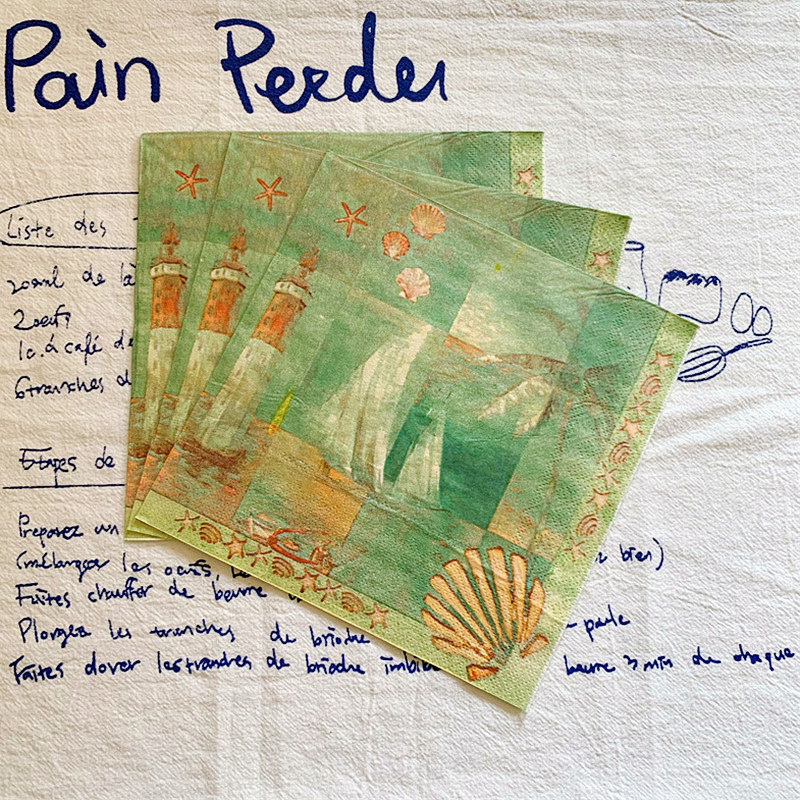 Pain Perdu
Liste des
200ml de la
2 oeufs
1c. à café de
6 tranches d
Etapes de
Preparez un
(mélanger les oeufs, bien)
Faites chauffer de beurre
Plongez les tranches de brioche
Faites dorer les tranches de brioche imbibé beurre 3 min de chaque